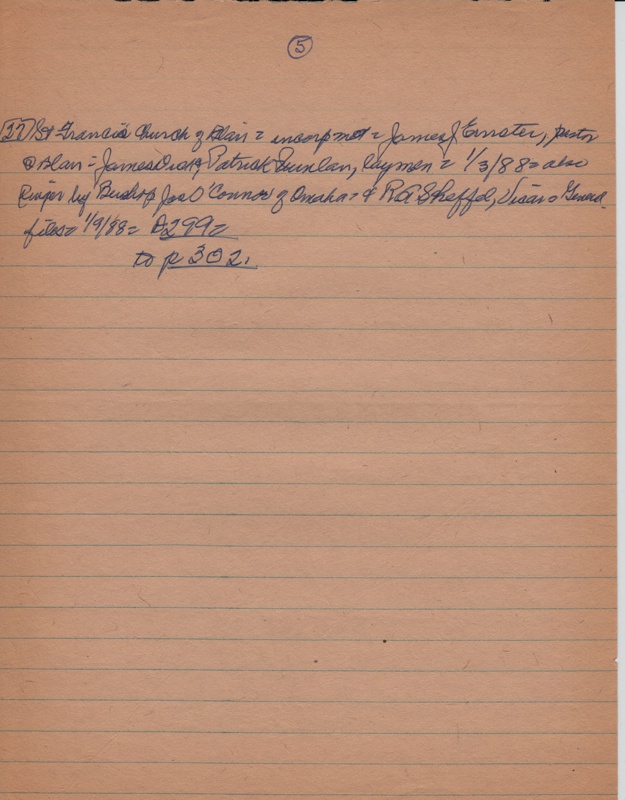 5
27) St Francis Church of Blair = incorp = James J
@ Blair = James & Patrick Quinlan, laymen = 1/3/88 = also
by Bishop Jas O'Connor of Omaha = & R A Sheffel, Vicar = General
files = 1/9/88 = D299 =
to p 302.